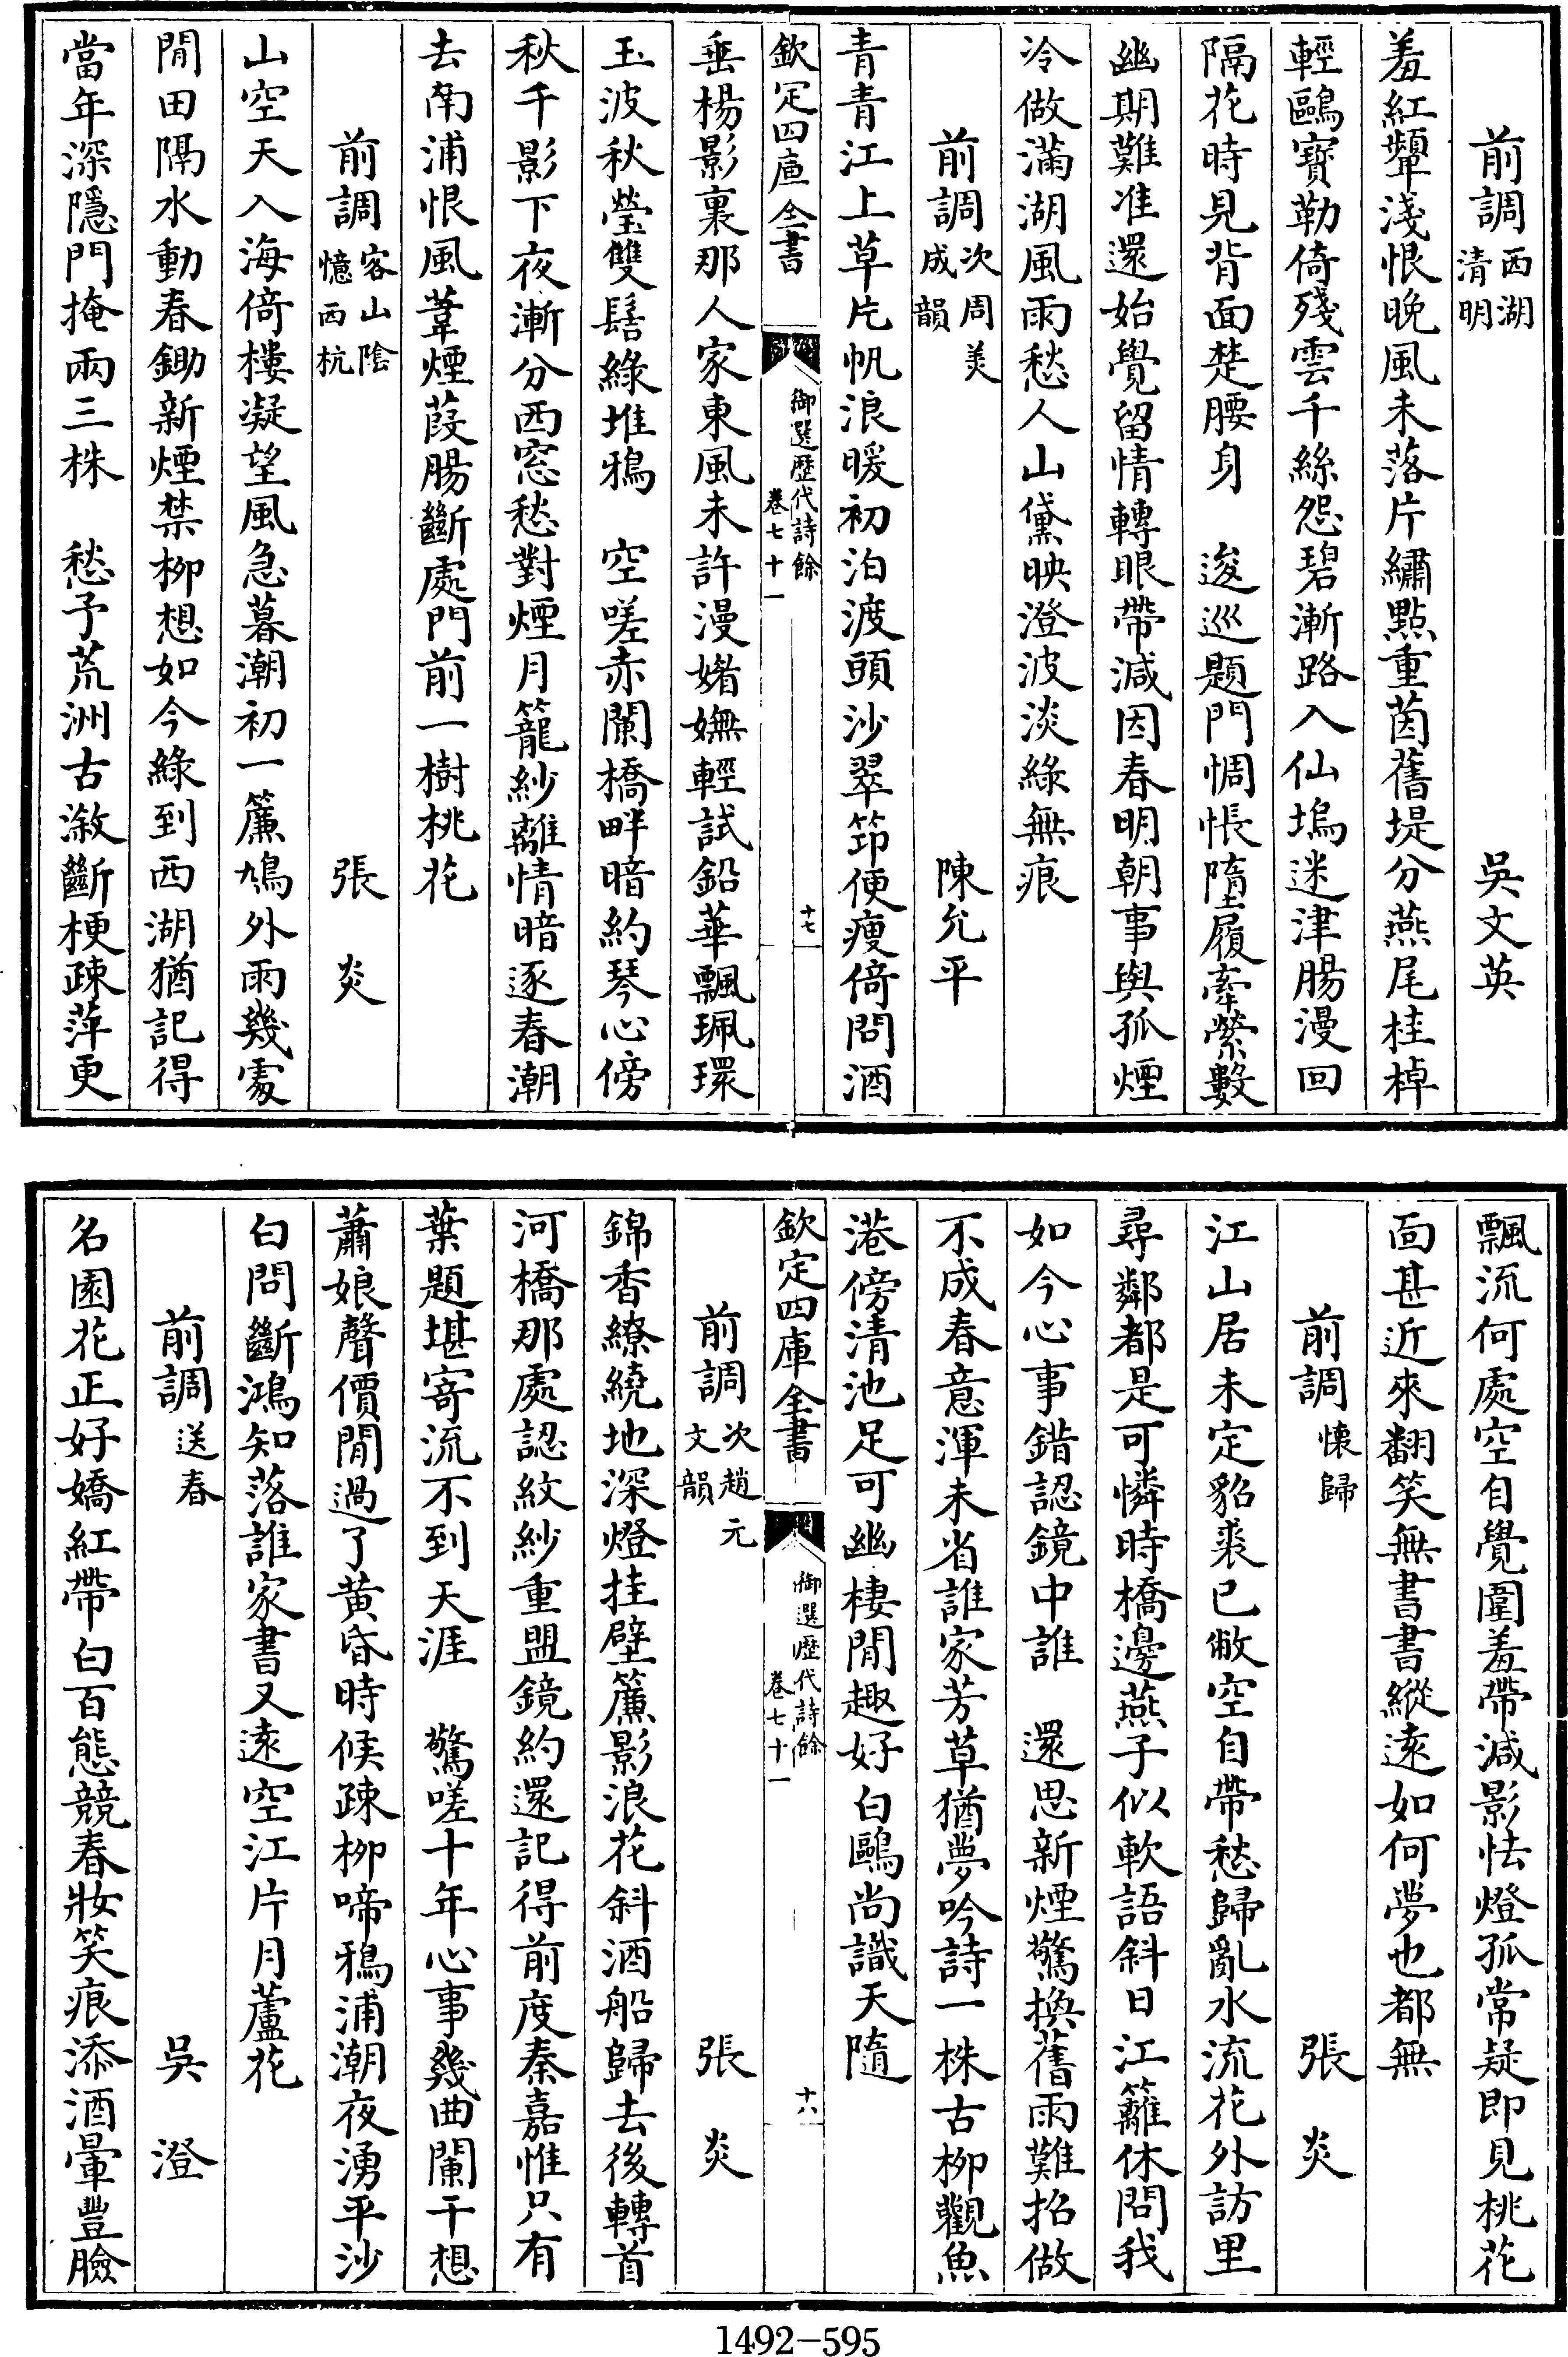 前調西湖清明　吳文英
羞紅顰淺恨晚風未落片繡點重茵舊堤分燕尾桂棹
輕鷗寶勒倚殘雲千絲怨碧漸路入仙塢迷津腸漫回
隔花時見背面楚腰身　逡巡題門惆悵墮履牽縈數
幽期難准還始覺留情轉眼帶減因春明朝事與孤煙
冷做滿湖風雨愁人山黛映澄波淡綠無痕
前調次周美成韻　陳允平
青青江上草片帆浪暖初泊渡頭沙翠筇便瘦倚問酒
欽定四庫全書
御選歷代詩餘
卷七十一
十七
垂楊影裏那人家東風未許漫媎嫵輕試鉛華飄珮環
玉波秋瑩雙髻綠堆鴉　空嗟赤闌橋畔暗約琴心傍
秋千影下夜漸分西窓愁對煙月籠紗離情暗逐春潮
去南浦恨風葦煙葭腸斷處門前一樹桃花
前調客山陰憶西杭　張炎
山空天入海倚樓凝望風急暮潮初一簾鳩外雨幾處
閒田隔水動春鋤新煙禁柳想如今綠到西湖猶記得
當年深隱門掩兩三株　愁予荒洲古漵斷梗疎萍更
飄流何處空自覺圍羞帶減影怯燈孤常疑即見桃花
面甚近來翻笑無書書縱遠如何夢也都無
前調懷歸　張炎
江山居未定貂裘已敝空自帶愁歸亂水流花外訪里
尋鄰都是可憐時橋邊燕子似軟語斜日江籬休問我
如今心事錯認鏡中誰　還思新煙驚換舊雨難招做
不成春意渾未省誰家芳草猶夢吟詩一株古柳觀魚
港傍清池足可幽棲閒趣好白鷗尚識天隨
欽定四庫全書
御選歷代詩餘
卷七十一
十八
前調次趙元文韻　張炎
錦香繚繞地深燈挂壁簾影浪花斜酒船歸去後轉首
河橋那處認紋紗重盟鏡約還記得前度秦嘉惟只有
葉題堪寄流不到天涯　驚嗟十年心事幾曲闌干想
蕭娘聲價閒過了黃昏時候疎柳啼鴉浦潮夜湧平沙
白問斷鴻知落誰家書又遠空江片月蘆花
前調送春　吳澄
名園花正好嬌紅帶白百態競春妝笑痕添酒暈豐臉
1492-595